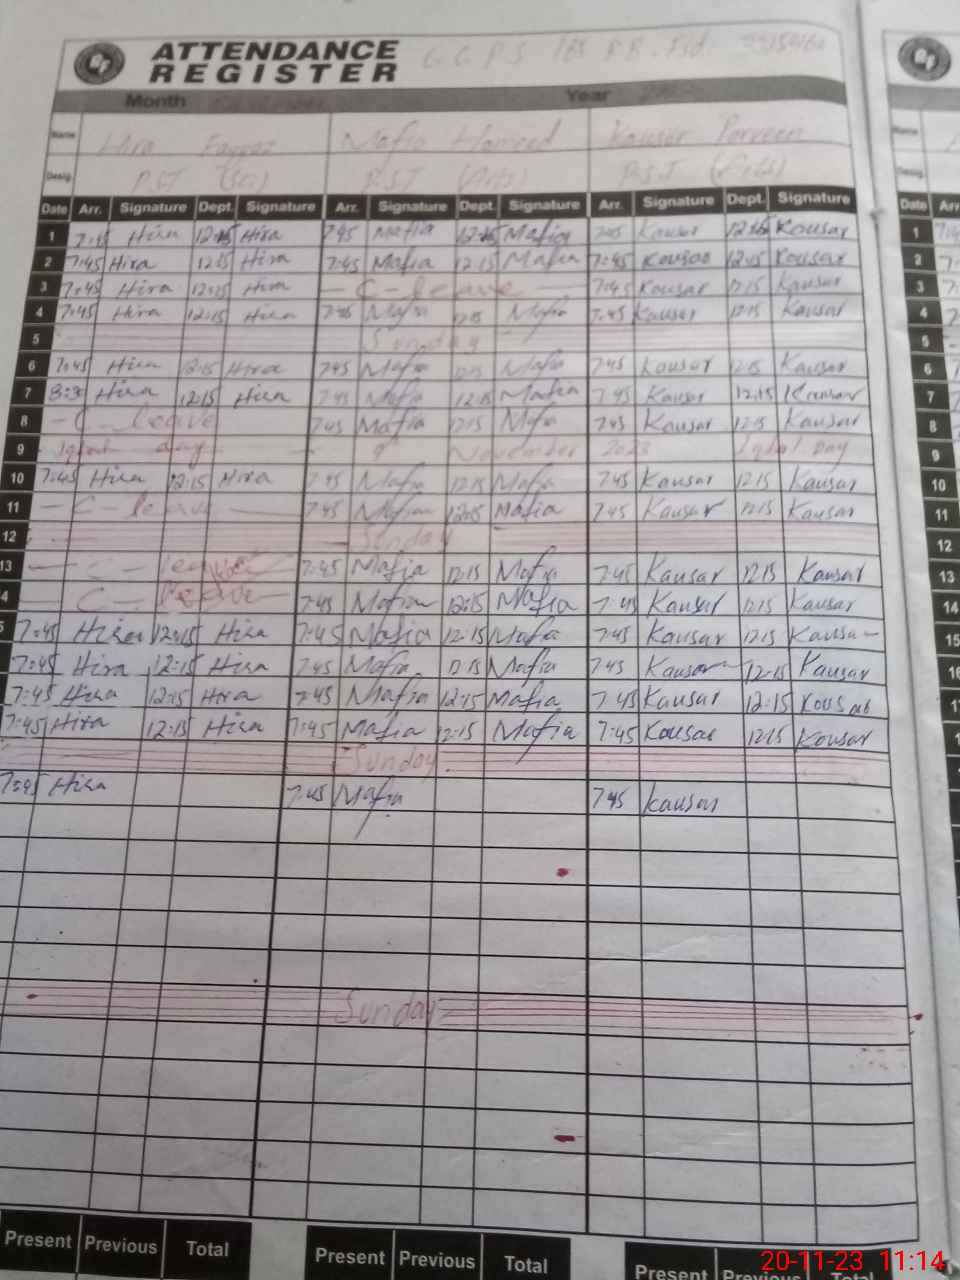 ATTENDANCE
REGISTER
G.G.P.S 185 R.B. Fsd.
Month Year
Name Hira Fayyaz Mafia Hameed Kausar Perveen
Desig. P.S.T (Sci) P.S.T (Arts) P.S.T (Arts)
Date Arr. Signature Dept. Signature Arr. Signature Dept. Signature Arr. Signature Dept. Signature
1 7:45 Hira 12:15 Hira 7:45 Mafia 12:15 Mafia 7:45 Kausar 12:15 Kousar
2 7:45 Hira 12:15 Hira 7:45 Mafia 12:15 Mafia 7:45 Kousar 12:15 Kousar
3 7:45 Hira 12:15 Hira - C - leave - 7:45 Kousar 12:15 Kausar
4 7:45 Hira 12:15 Hira 7:45 Mafia 12:15 Mafia 7:45 Kausar 12:15 Kausar
5 Sunday
6 7:45 Hira 12:15 Hira 7:45 Mafia 12:15 Mafia 7:45 Kausar 12:15 Kausar
7 8:30 Hira 12:15 Hira 7:45 Mafia 12:15 Mafia 7:45 Kausar 12:15 Kausar
8 - C - leave 7:45 Mafia 12:15 Mafia 7:45 Kausar 12:15 Kausar
9 Iqbal day - 9 November 2023 Iqbal Day
10 7:45 Hira 12:15 Hira 7:45 Mafia 12:15 Mafia 7:45 Kausar 12:15 Kausar
11 - C - leave - 7:45 Mafia 12:15 Mafia 7:45 Kausar 12:15 Kausar
12 Sunday
13 - C - leave 7:45 Mafia 12:15 Mafia 7:45 Kausar 12:15 Kausar
4 - C - leave - 7:45 Mafia 12:15 Mafia 7:45 Kausar 12:15 Kausar
5 7:45 Hira 12:15 Hira 7:45 Mafia 12:15 Mafia 7:45 Kausar 12:15 Kausar
7:45 Hira 12:15 Hira 7:45 Mafia 12:15 Mafia 7:45 Kausar 12:15 Kausar
7:45 Hira 12:15 Hira 7:45 Mafia 12:15 Mafia 7:45 Kausar 12:15 Kousar
7:45 Hira 12:15 Hira 7:45 Mafia 12:15 Mafia 7:45 Kousar 12:15 Kousar
Sunday
7:45 Hira 7:45 Mafia 7:45 Kausar
Sunday
Present Previous Total Present Previous Total Present Previous
Name
Desig.
Date Arr
1
2
3
4
5
6
7
8
9
10
11
12
13
14
15
16
20-11-23 11:14